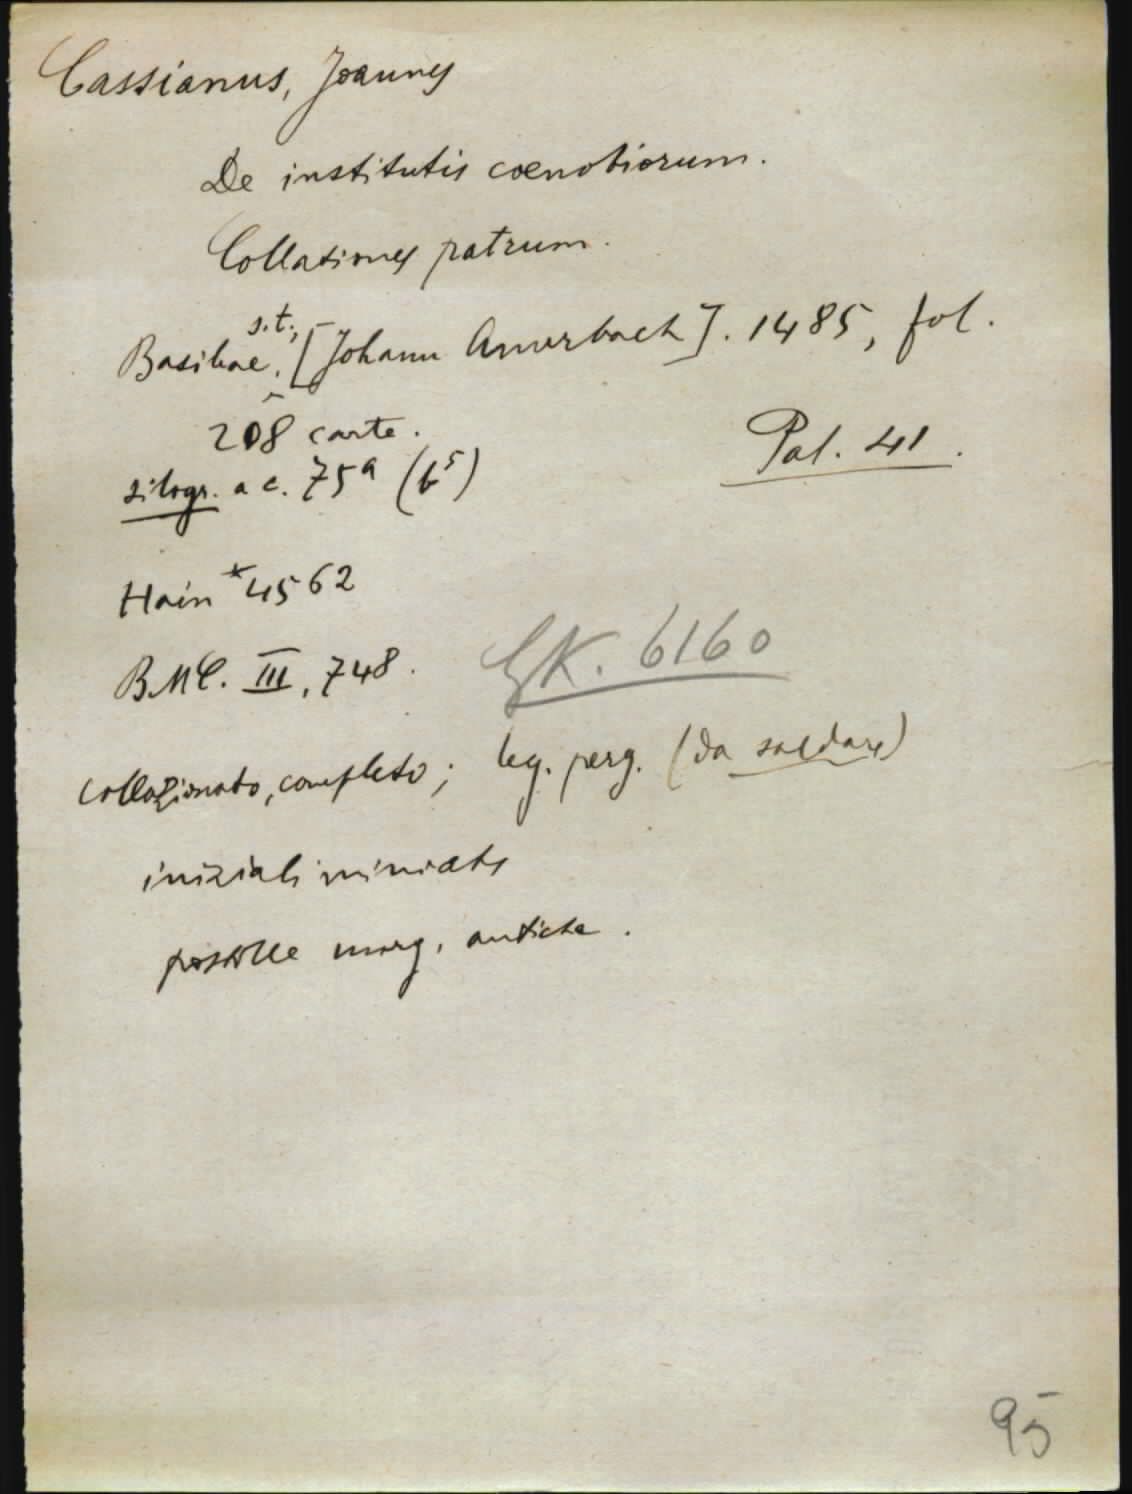 Cassianus, Joannes
De institutis coenobiorum.
Collationes patrum.
Basileae, s.t., [Johann Amerbach]. 1485, fol.
208 carte.
Pal. 41.
silogr. a c. 75a (b5)
Hain *4562
BMC. III, 748.
GK. 6160
collazionato, completo; leg. perg. (da saldare)
iniziali miniate
postille marg. antiche.
95